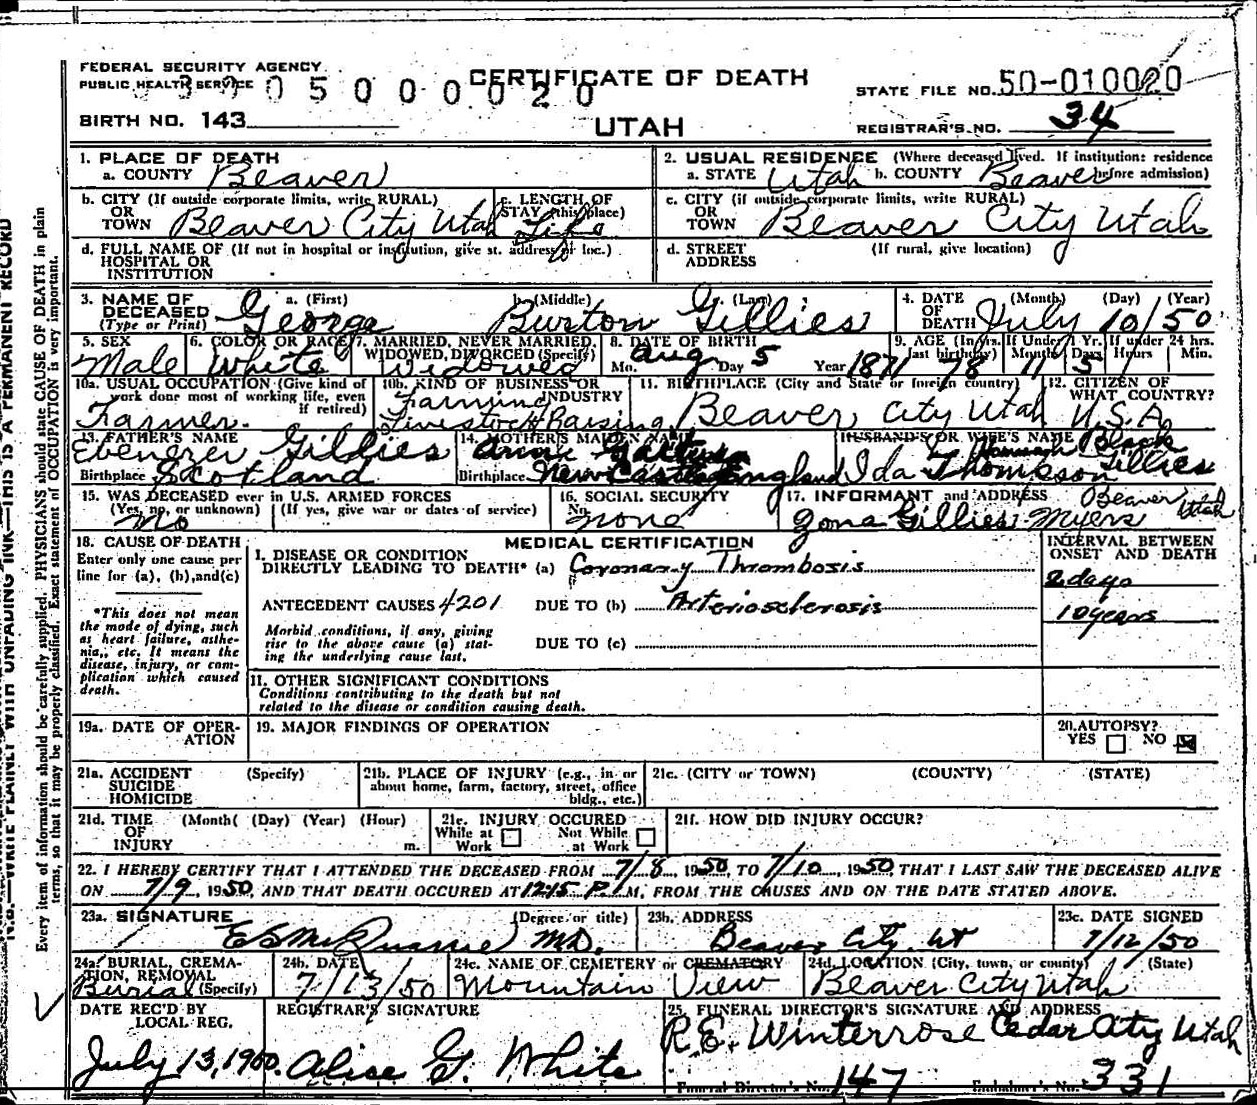 FEDERAL SECURITY AGENCY
PUBLIC HEALTH SERVICE
CERTIFICATE OF DEATH
UTAH
STATE FILE NO. 50-010020
BIRTH NO. 143
REGISTRAR'S NO. 34
1. PLACE OF DEATH
a. COUNTY Beaver
2. USUAL RESIDENCE (Where deceased lived. If institution: residence before admission)
a. STATE Utah b. COUNTY Beaver
b. CITY (If outside corporate limits, write RURAL) OR TOWN Beaver City Utah
c. LENGTH OF STAY (this place) Life
c. CITY (if outside corporate limits, write RURAL) OR TOWN Beaver City Utah
d. FULL NAME OF (If not in hospital or institution, give st. address or loc.) HOSPITAL OR INSTITUTION
d. STREET ADDRESS (If rural, give location)
3. NAME OF DECEASED (Type or Print) a. (First) b. (Middle) c. (Last)
George Burton Gillies
4. DATE OF DEATH (Month) (Day) (Year) July 10/50
5. SEX Male
6. COLOR OR RACE White
7. MARRIED, NEVER MARRIED, WIDOWED, DIVORCED (Specify) Widowed
8. DATE OF BIRTH Mo. Aug Day 5 Year 1871
9. AGE (In Yrs. last birthday) 78 If Under 1 Yr. Months 11 Days 5 If under 24 hrs. Hours Min.
10a. USUAL OCCUPATION (Give kind of work done most of working life, even if retired) Farmer.
10b. KIND OF BUSINESS OR INDUSTRY Farming Livestock Raising
11. BIRTHPLACE (City and State or foreign country) Beaver City Utah
12. CITIZEN OF WHAT COUNTRY? U.S.A.
13. FATHER'S NAME Ebenezer Gillies
Birthplace Scotland
14. MOTHER'S MAIDEN NAME
Birthplace New Castle England
HUSBAND'S OR WIFE'S NAME Hannah Black
Ida Thompson Gillies
15. WAS DECEASED ever in U.S. ARMED FORCES
(Yes, no, or unknown) (If yes, give war or dates of service)
No
16. SOCIAL SECURITY No. none
17. INFORMANT and ADDRESS Beaver Utah
Zona Gillies Myers
18. CAUSE OF DEATH
Enter only one cause per line for (a), (b), and (c)
*This does not mean the mode of dying, such as heart failure, asthenia, etc. It means the disease, injury, or complication which caused death.
MEDICAL CERTIFICATION
INTERVAL BETWEEN ONSET AND DEATH
I. DISEASE OR CONDITION DIRECTLY LEADING TO DEATH* (a) Coronary Thrombosis
2 days
ANTECEDENT CAUSES 4201 DUE TO (b) Arteriosclerosis
10 years
Morbid conditions, if any, giving rise to the above cause (a) stating the underlying cause last.
DUE TO (c)
II. OTHER SIGNIFICANT CONDITIONS
Conditions contributing to the death but not related to the disease or condition causing death.
19a. DATE OF OPERATION
19. MAJOR FINDINGS OF OPERATION
20. AUTOPSY? YES NO
21a. ACCIDENT SUICIDE HOMICIDE (Specify)
21b. PLACE OF INJURY (e.g., in or about home, farm, factory, street, office bldg., etc.)
21c. (CITY or TOWN) (COUNTY) (STATE)
21d. TIME OF INJURY (Month( (Day) (Year) (Hour) m.
21e. INJURY OCCURED While at Work Not While at Work
21f. HOW DID INJURY OCCUR?
22. I HEREBY CERTIFY THAT I ATTENDED THE DECEASED FROM 7/8, 1950 TO 7/10, 1950 THAT I LAST SAW THE DECEASED ALIVE
ON 7/9, 1950, AND THAT DEATH OCCURED AT 1245 P.M, FROM THE CAUSES AND ON THE DATE STATED ABOVE.
23a. SIGNATURE (Degree or title) MD.
23b. ADDRESS Beaver City. Ut
23c. DATE SIGNED 7/12/50
24a. BURIAL, CREMATION, REMOVAL (Specify) Burial
24b. DATE 7/13/50
24c. NAME OF CEMETERY or CREMATORY Mountain View
24d. LOCATION (City, town, or county) (State) Beaver City Utah
DATE REC'D BY LOCAL REG. July 13, 1950.
REGISTRAR'S SIGNATURE Alice G. White
25. FUNERAL DIRECTOR'S SIGNATURE AND ADDRESS
R.E. Winterrose Cedar City Utah
Funeral Director's No. 147 Embalmer's No. 331
N.B.—WRITE PLAINLY WITH UNFADING INK—THIS IS A PERMANENT RECORD
Every item of information should be carefully supplied. PHYSICIANS should state CAUSE OF DEATH in plain
terms, so that it may be properly classified. Exact statement of OCCUPATION is very important.